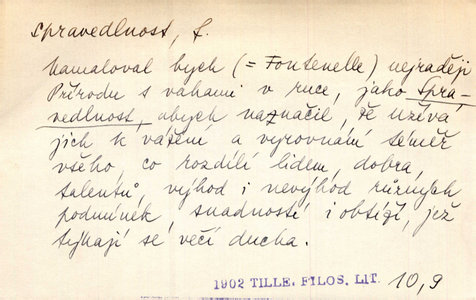 spravedlnost, f.
Namaloval bych (= Fontenelle) nejraději
Přírodu s váhami v ruce, jako Spra-
vedlnost, abych naznačil, že užívá
jich k vážení a vyrovnání téměř
všeho co rozdílí lidem, dobra,
talentů, výhod i nevýhod různých
podmínek, snadností i obtíží, jež
týkají se věcí ducha.
1902 TILLE, FILOS. LIT. 10,9